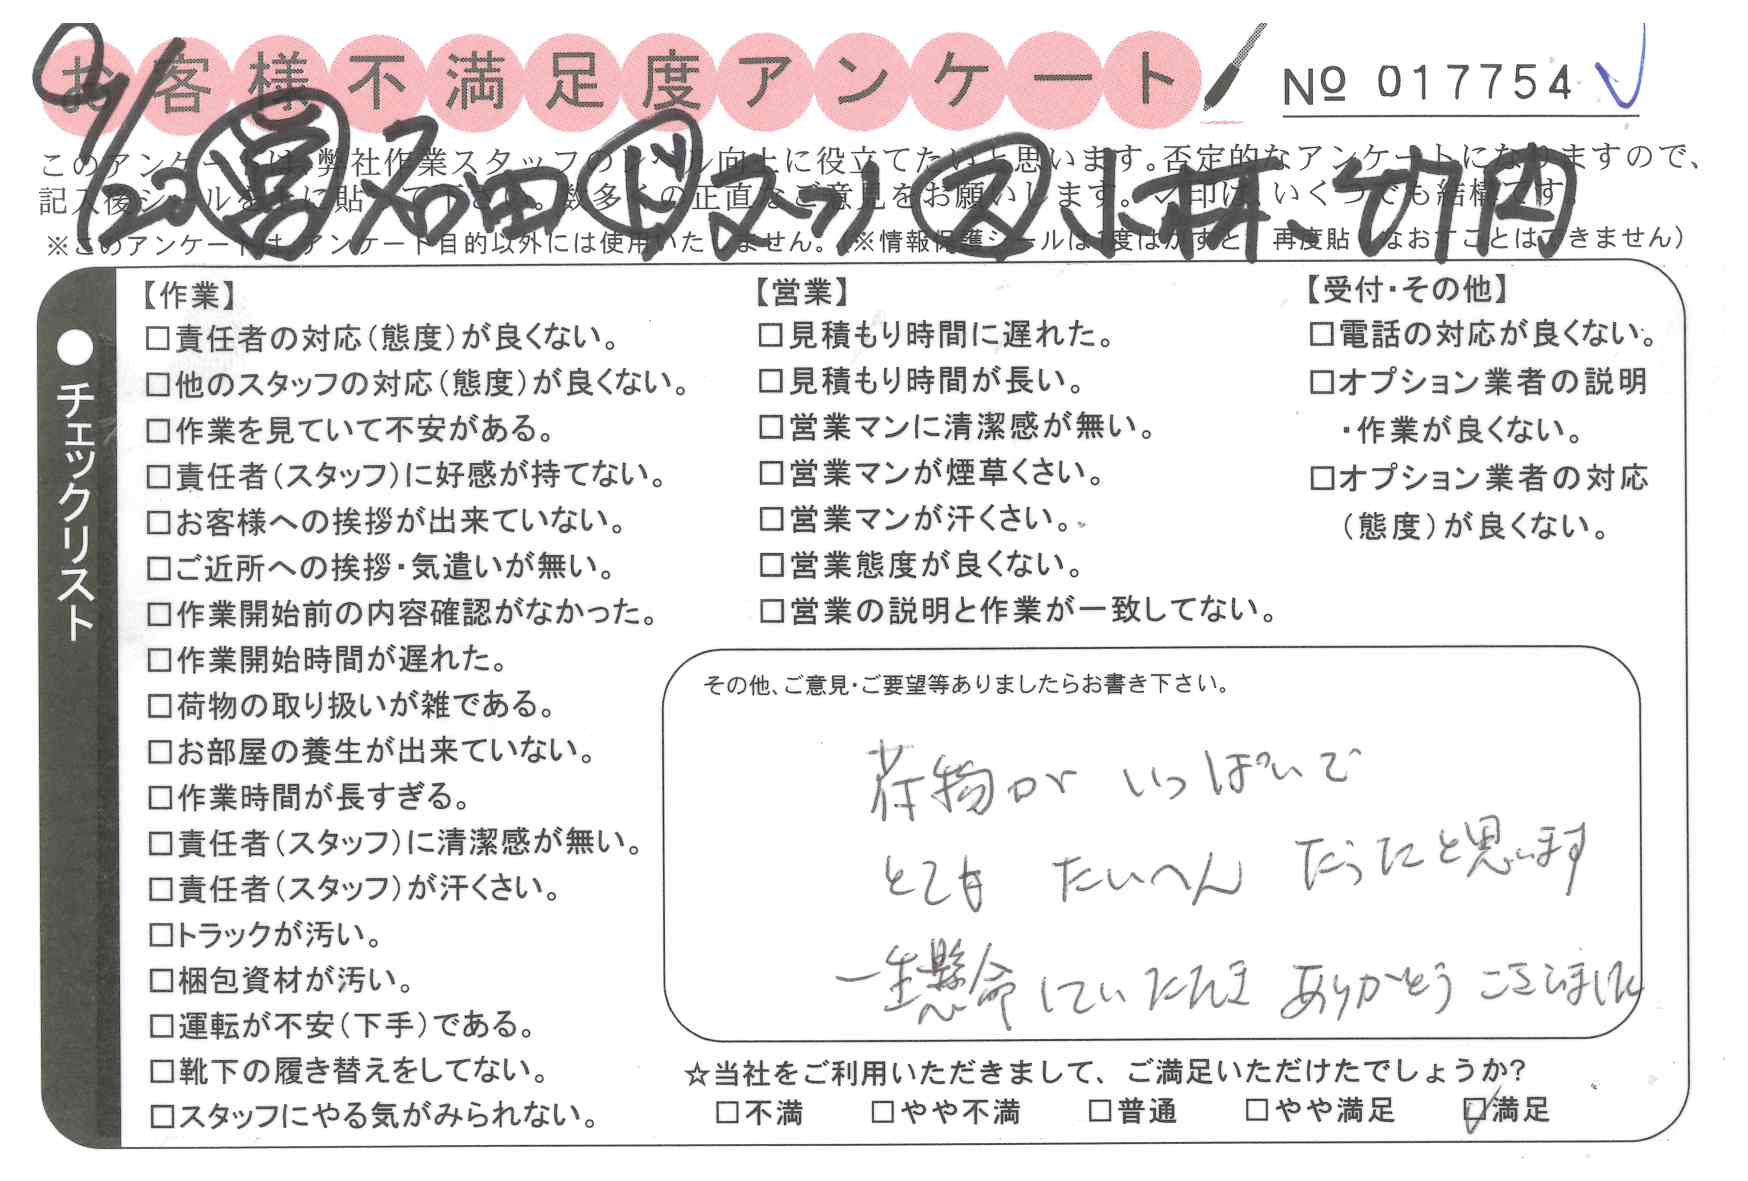 お客様不満足度アンケート
№ 017754
9/20 営 石田 ド マツ ス 小林、竹内
このアンケートは、弊社作業スタッフのレベル向上に役立てたいと思います。否定的なアンケートになりますので、
記入後シールを上に貼って下さい。数多くの正直なご意見をお願いします。✓印は、いくつでも結構です。
※このアンケートは、アンケート目的以外には使用いたしません。(※情報保護シールは1度はがすと、再度貼りなおすことはできません)
●チェックリスト
【作業】
□責任者の対応(態度)が良くない。
□他のスタッフの対応(態度)が良くない。
□作業を見ていて不安がある。
□責任者(スタッフ)に好感が持てない。
□お客様への挨拶が出来ていない。
□ご近所への挨拶・気遣いが無い。
□作業開始前の内容確認がなかった。
□作業開始時間が遅れた。
□荷物の取り扱いが雑である。
□お部屋の養生が出来ていない。
□作業時間が長すぎる。
□責任者(スタッフ)に清潔感が無い。
□責任者(スタッフ)が汗くさい。
□トラックが汚い。
□梱包資材が汚い。
□運転が不安(下手)である。
□靴下の履き替えをしてない。
□スタッフにやる気がみられない。
【営業】
□見積もり時間に遅れた。
□見積もり時間が長い。
□営業マンに清潔感が無い。
□営業マンが煙草くさい。
□営業マンが汗くさい。
□営業態度が良くない。
□営業の説明と作業が一致してない。
【受付・その他】
□電話の対応が良くない。
□オプション業者の説明
・作業が良くない。
□オプション業者の対応
(態度)が良くない。
その他、ご意見・ご要望等ありましたらお書き下さい。
荷物が いっぱいで
とても たいへん だったと思います
一生懸命していただき ありがとうございました
☆当社をご利用いただきまして、ご満足いただけたでしょうか?
□不満 □やや不満 □普通 □やや満足 ☑満足